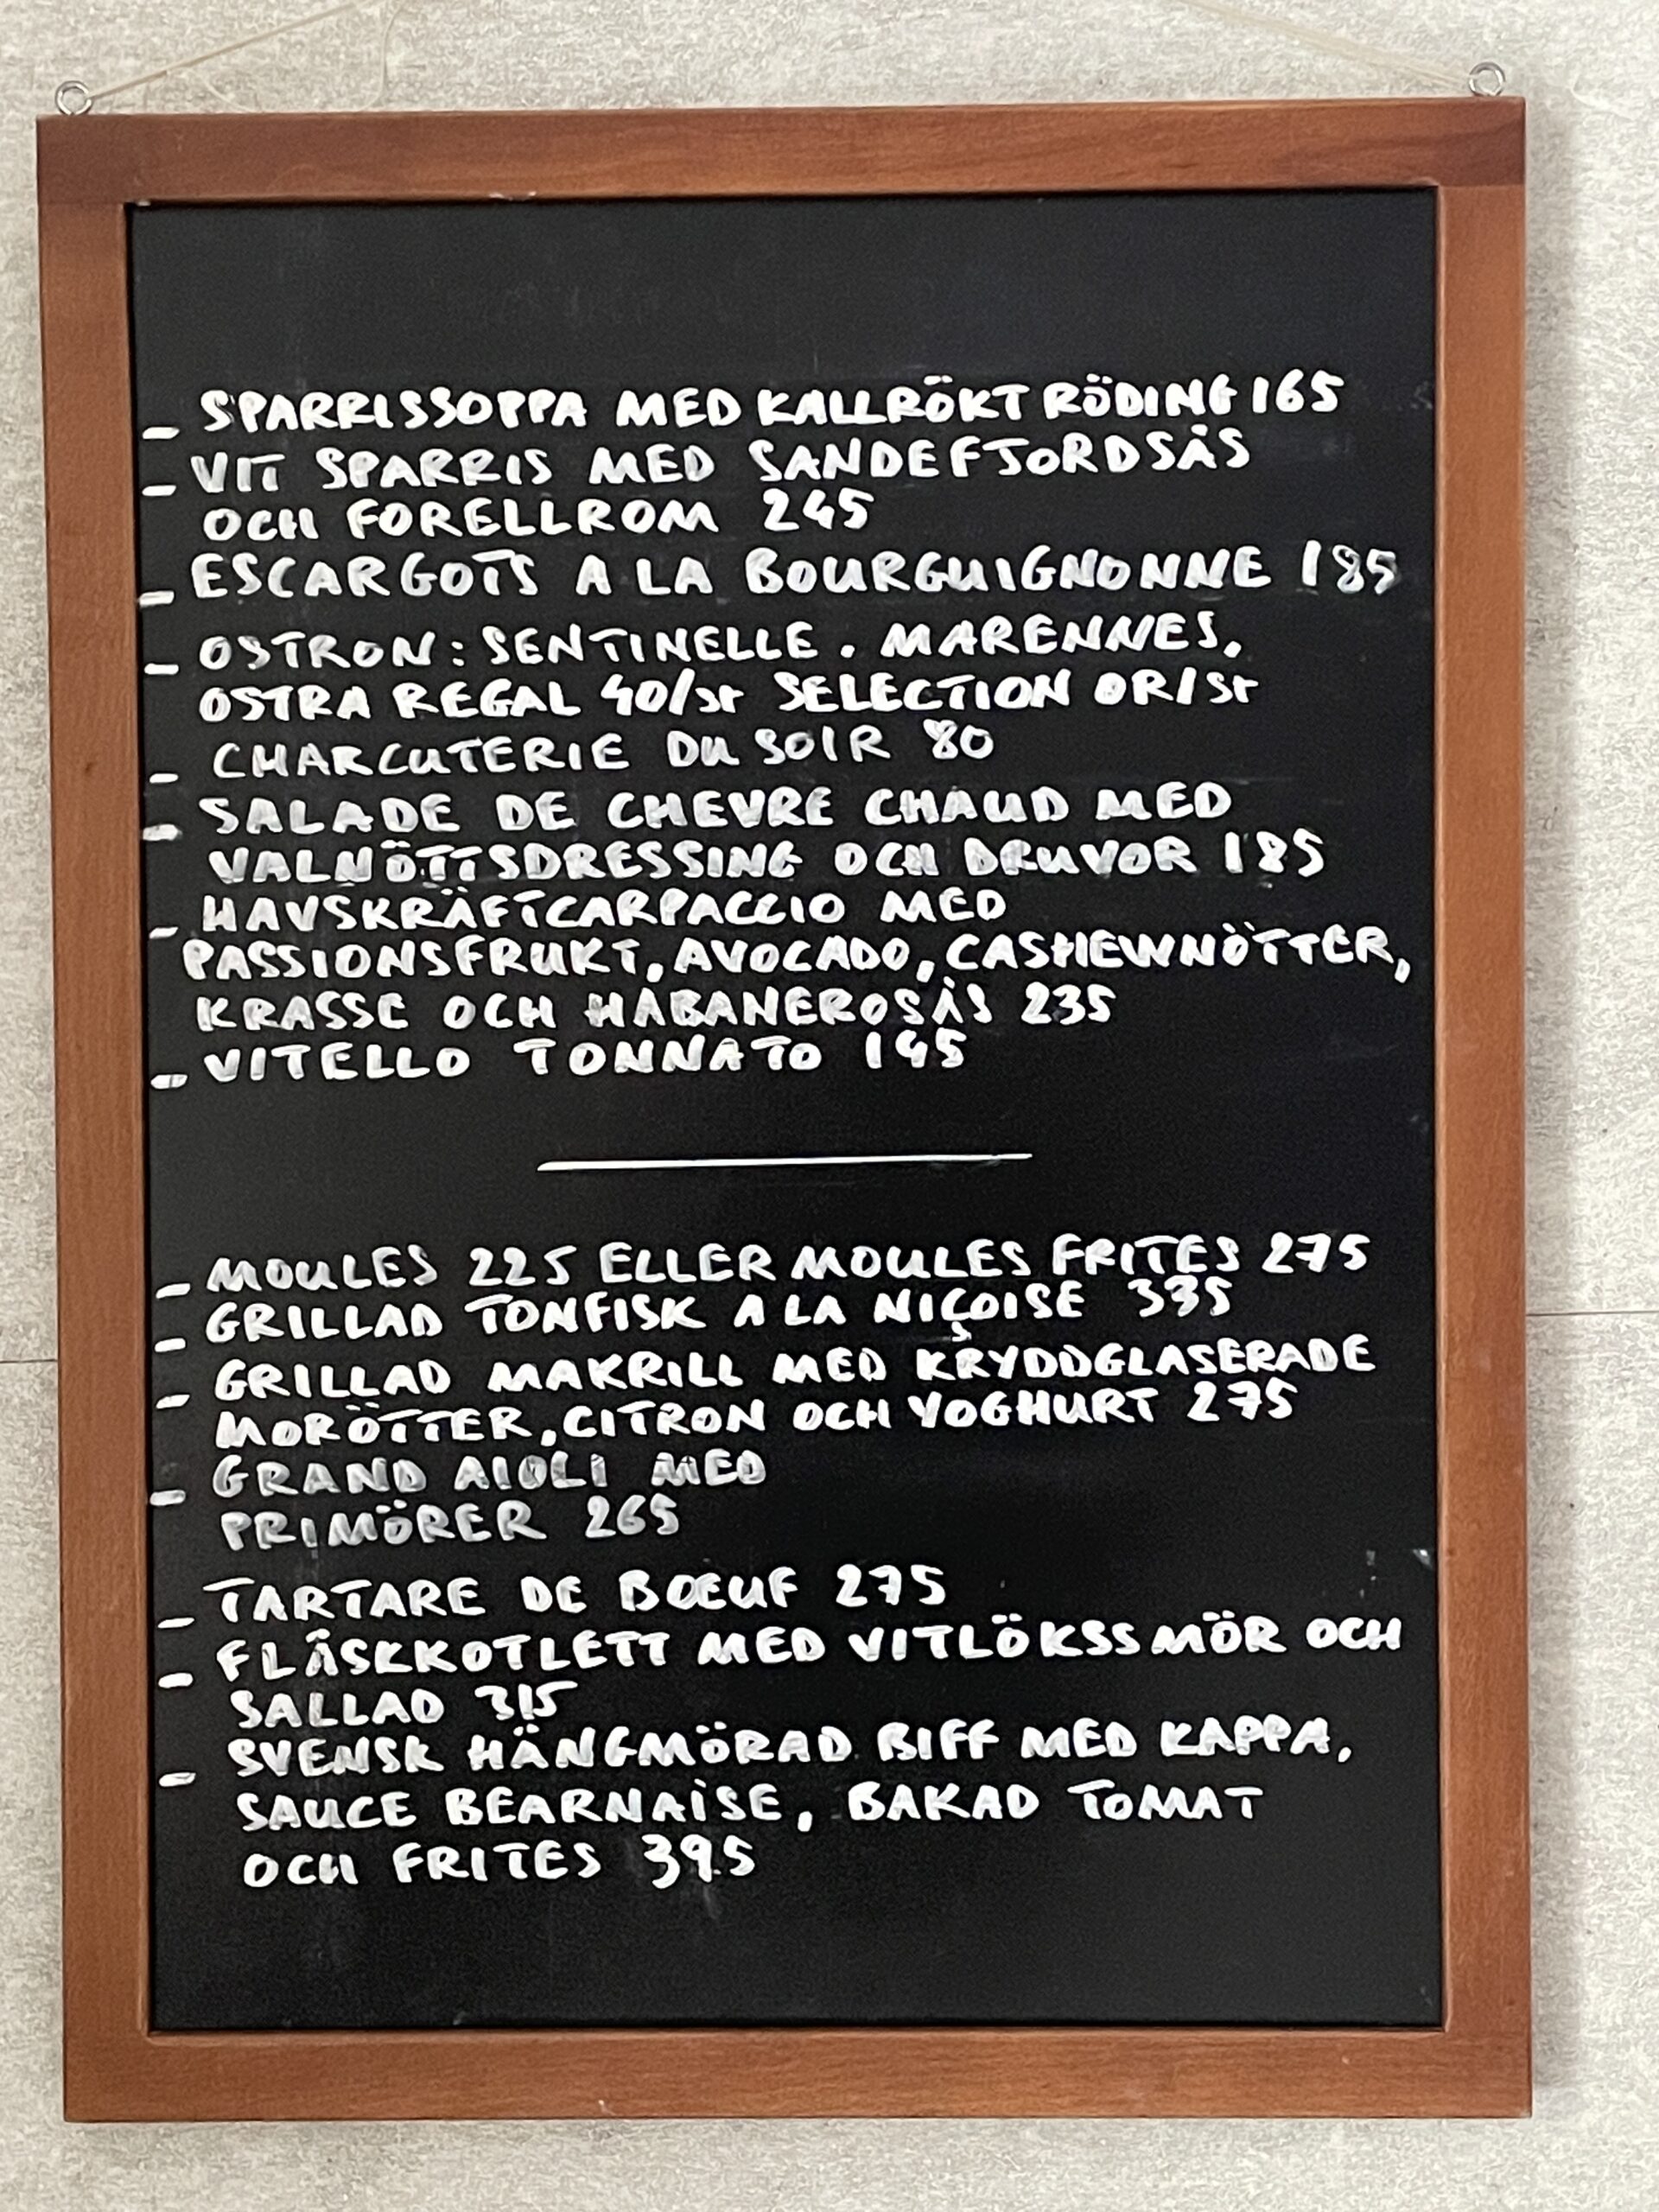 - SPARRISSOPPA MED KALLRÖKT RÖDING 165
- VIT SPARRIS MED SANDEFJORDSÅS
OCH FORELLROM 245
- ESCARGOTS A LA BOURGUIGNONNE 185
- OSTRON: SENTINELLE. MARENNES,
OSTRA REGAL 40/st SELECTION OR/St
- CHARCUTERIE DU SOIR 80
- SALADE DE CHEVRE CHAUD MED
VALNÖTTSDRESSING OCH DRUVOR 185
- HAVSKRÄFTCARPACCIO MED
PASSIONSFRUKT, AVOCADO, CASHEWNÖTTER,
KRASSE OCH HABANEROSÅS 235
- VITELLO TONNATO 145
- MOULES 225 ELLER MOULES FRITES 275
- GRILLAD TONFISK A LA NIÇOISE 335
- GRILLAD MAKRILL MED KRYDDGLASERADE
MORÖTTER, CITRON OCH YOGHURT 275
- GRAND AIOLI MED
PRIMÖRER 265
- TARTARE DE BŒUF 275
- FLÄSKKOTLETT MED VITLÖKSSMÖR OCH
SALLAD 315
- SVENSK HÄNGMÖRAD BIFF MED KAPPA,
SAUCE BEARNAISE, BAKAD TOMAT
OCH FRITES 395